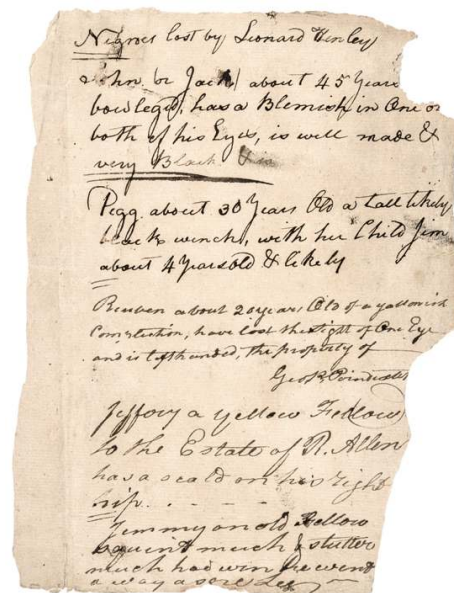 Negroes lost by Leonard Henley
John (or Jack) about 45 Years
bowleg'd, has a Blemish in One or
both of his Eyes, is well made &
very Black
Pegg. about 30 Years Old a tall likely
black wench, with her Child Jim
about 4 Years old & likely
Reuben about 20 years Old of a yallowish
Complection, have lost the sight of One Eye
and is lefthanded, the property of
Geo. Poindexter
Jeffory a yellow Fellow
to the Estate of R. Allen
has a scald on his right
hip.
Jimmy an old Fellow
squint much & stutter
much had win he went
a way a sore Leg